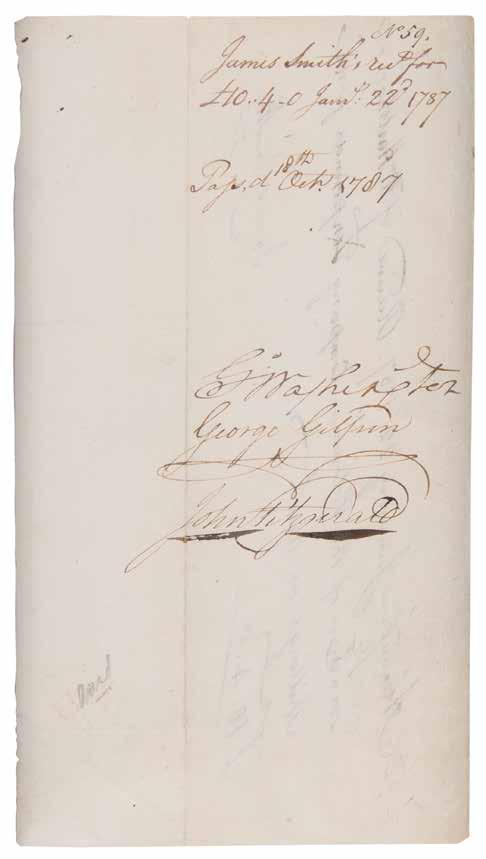 No. 59.
James Smith's rect for
£10..4-0 Jany. 22d 1787
Pass,d 18th Octr. 1787
Go Washington
George Gilpin
John Fitzgerald